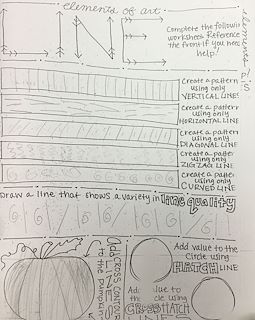 elements of art
LINE
Complete the followin
worksheet. Reference
the front if you need
help!
elements
Create a pattern
using only
VERTICAL LINES
Create a pattern
using only
HORIZONTAL LINE
Create a pattern
using only
DIAGONAL LINE
Create a pattern
using only
ZIG ZAG LINE
Create a patter
using only
CURVED LINE
Draw a line that shows a variety in line quality
Add CROSS CONTOUR
LINES
to the pumpkin
Add value to the
circle using
HATCH LINE
Ad lue to
the cle using
CROSSHATCH
LINES